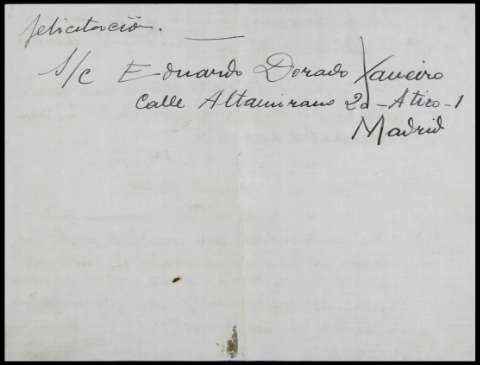 felicitación.
S/c Eduardo Dorado
Calle Altamirano 20-Atico-1
Madrid